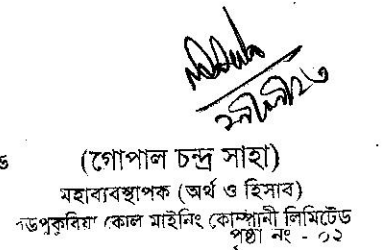 (গোপাল চন্দ্র সাহা)
মহাব্যবস্থাপক (অর্থ ও হিসাব)
কোল মাইনিং কোম্পানী লিমিটেড
পৃষ্ঠা নং - ০২